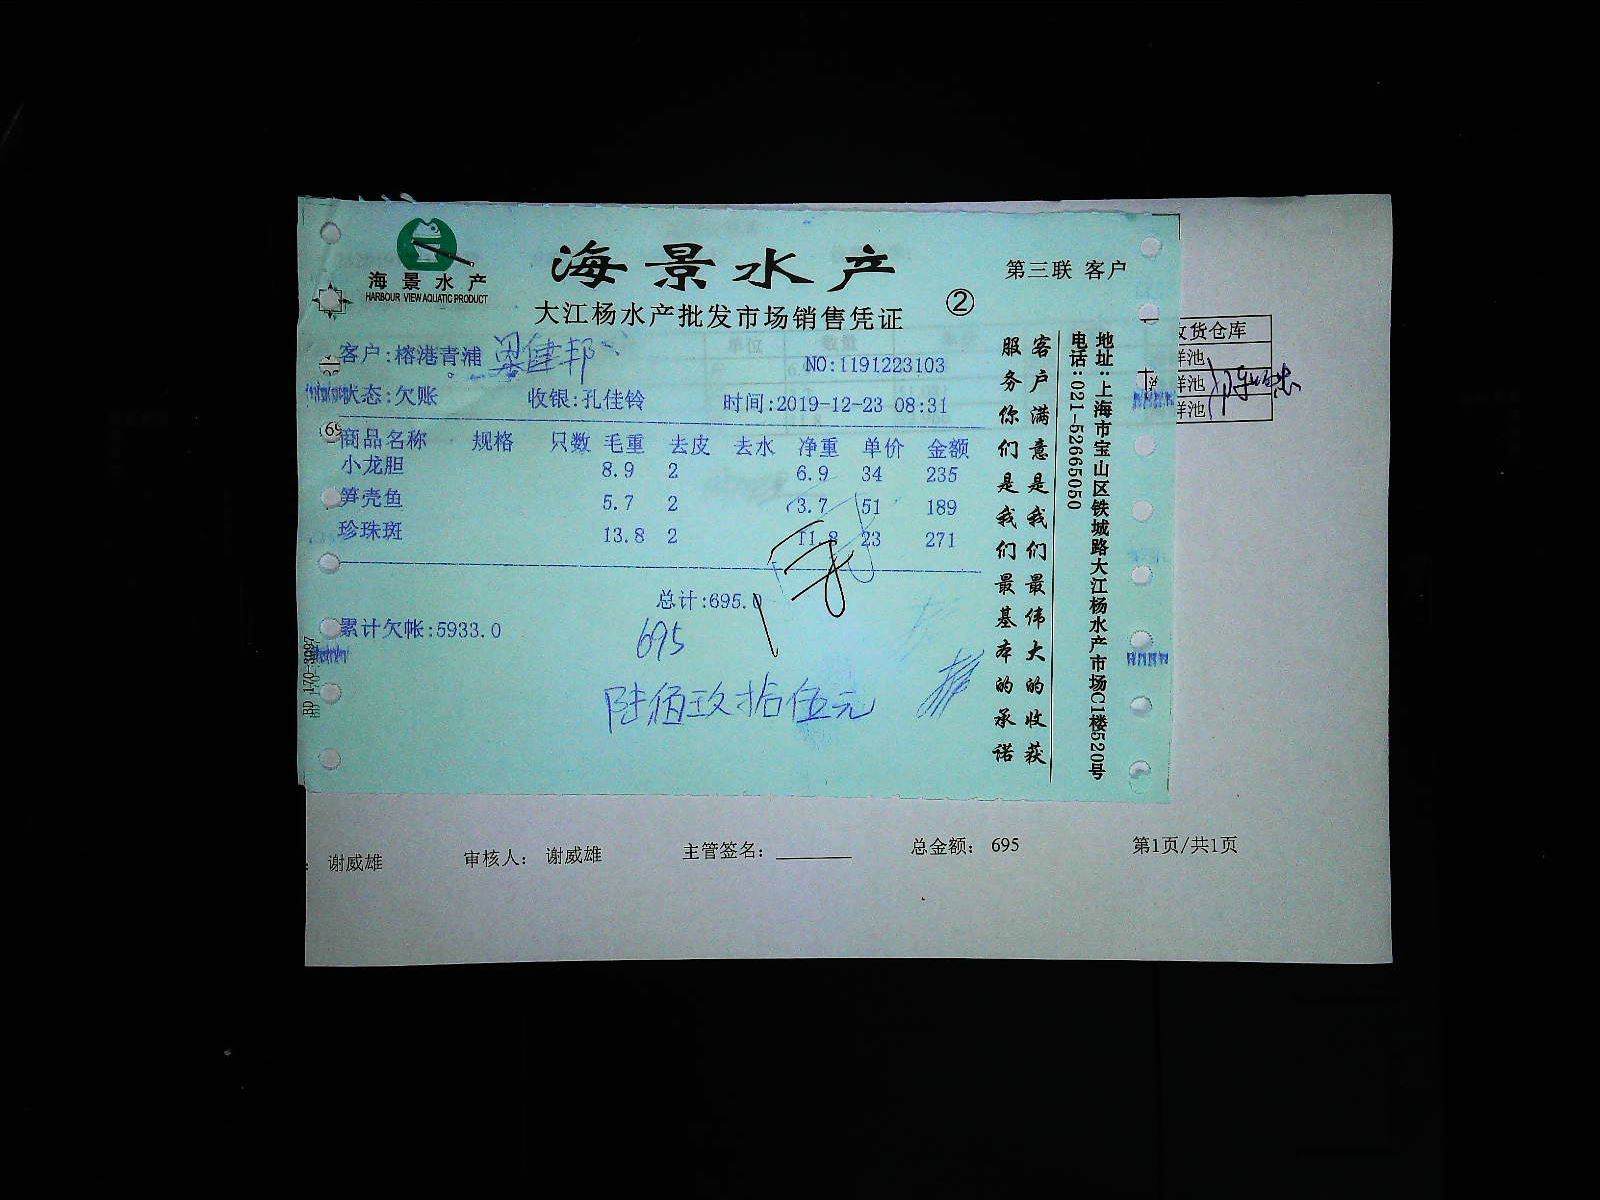 海景水产
HARBOUR VIEW AQUATIC PRODUCT
海景水产
大江杨水产批发市场销售凭证
②
第三联 客户
客户:榕港青浦 梁健邦
NO:1191223103
状态:欠账 收银:孔佳铃 时间:2019-12-23 08:31
商品名称 规格 只数 毛重 去皮 去水 净重 单价 金额
小龙胆 8.9 2 6.9 34 235
笋壳鱼 5.7 2 3.7 51 189
珍珠斑 13.8 2 11.8 23 271
总计:695.0
累计欠帐:5933.0
695
陆佰玖拾伍元
客户满意是我们最伟大的收获
服务你们是我们最基本的承诺
地址:上海市宝山区铁城路大江杨水产市场C1楼520号
电话:021-52665050
货仓库
鲜池
鲜池
鲜池
谢威雄 审核人: 谢威雄 主管签名: 总金额: 695 第1页/共1页